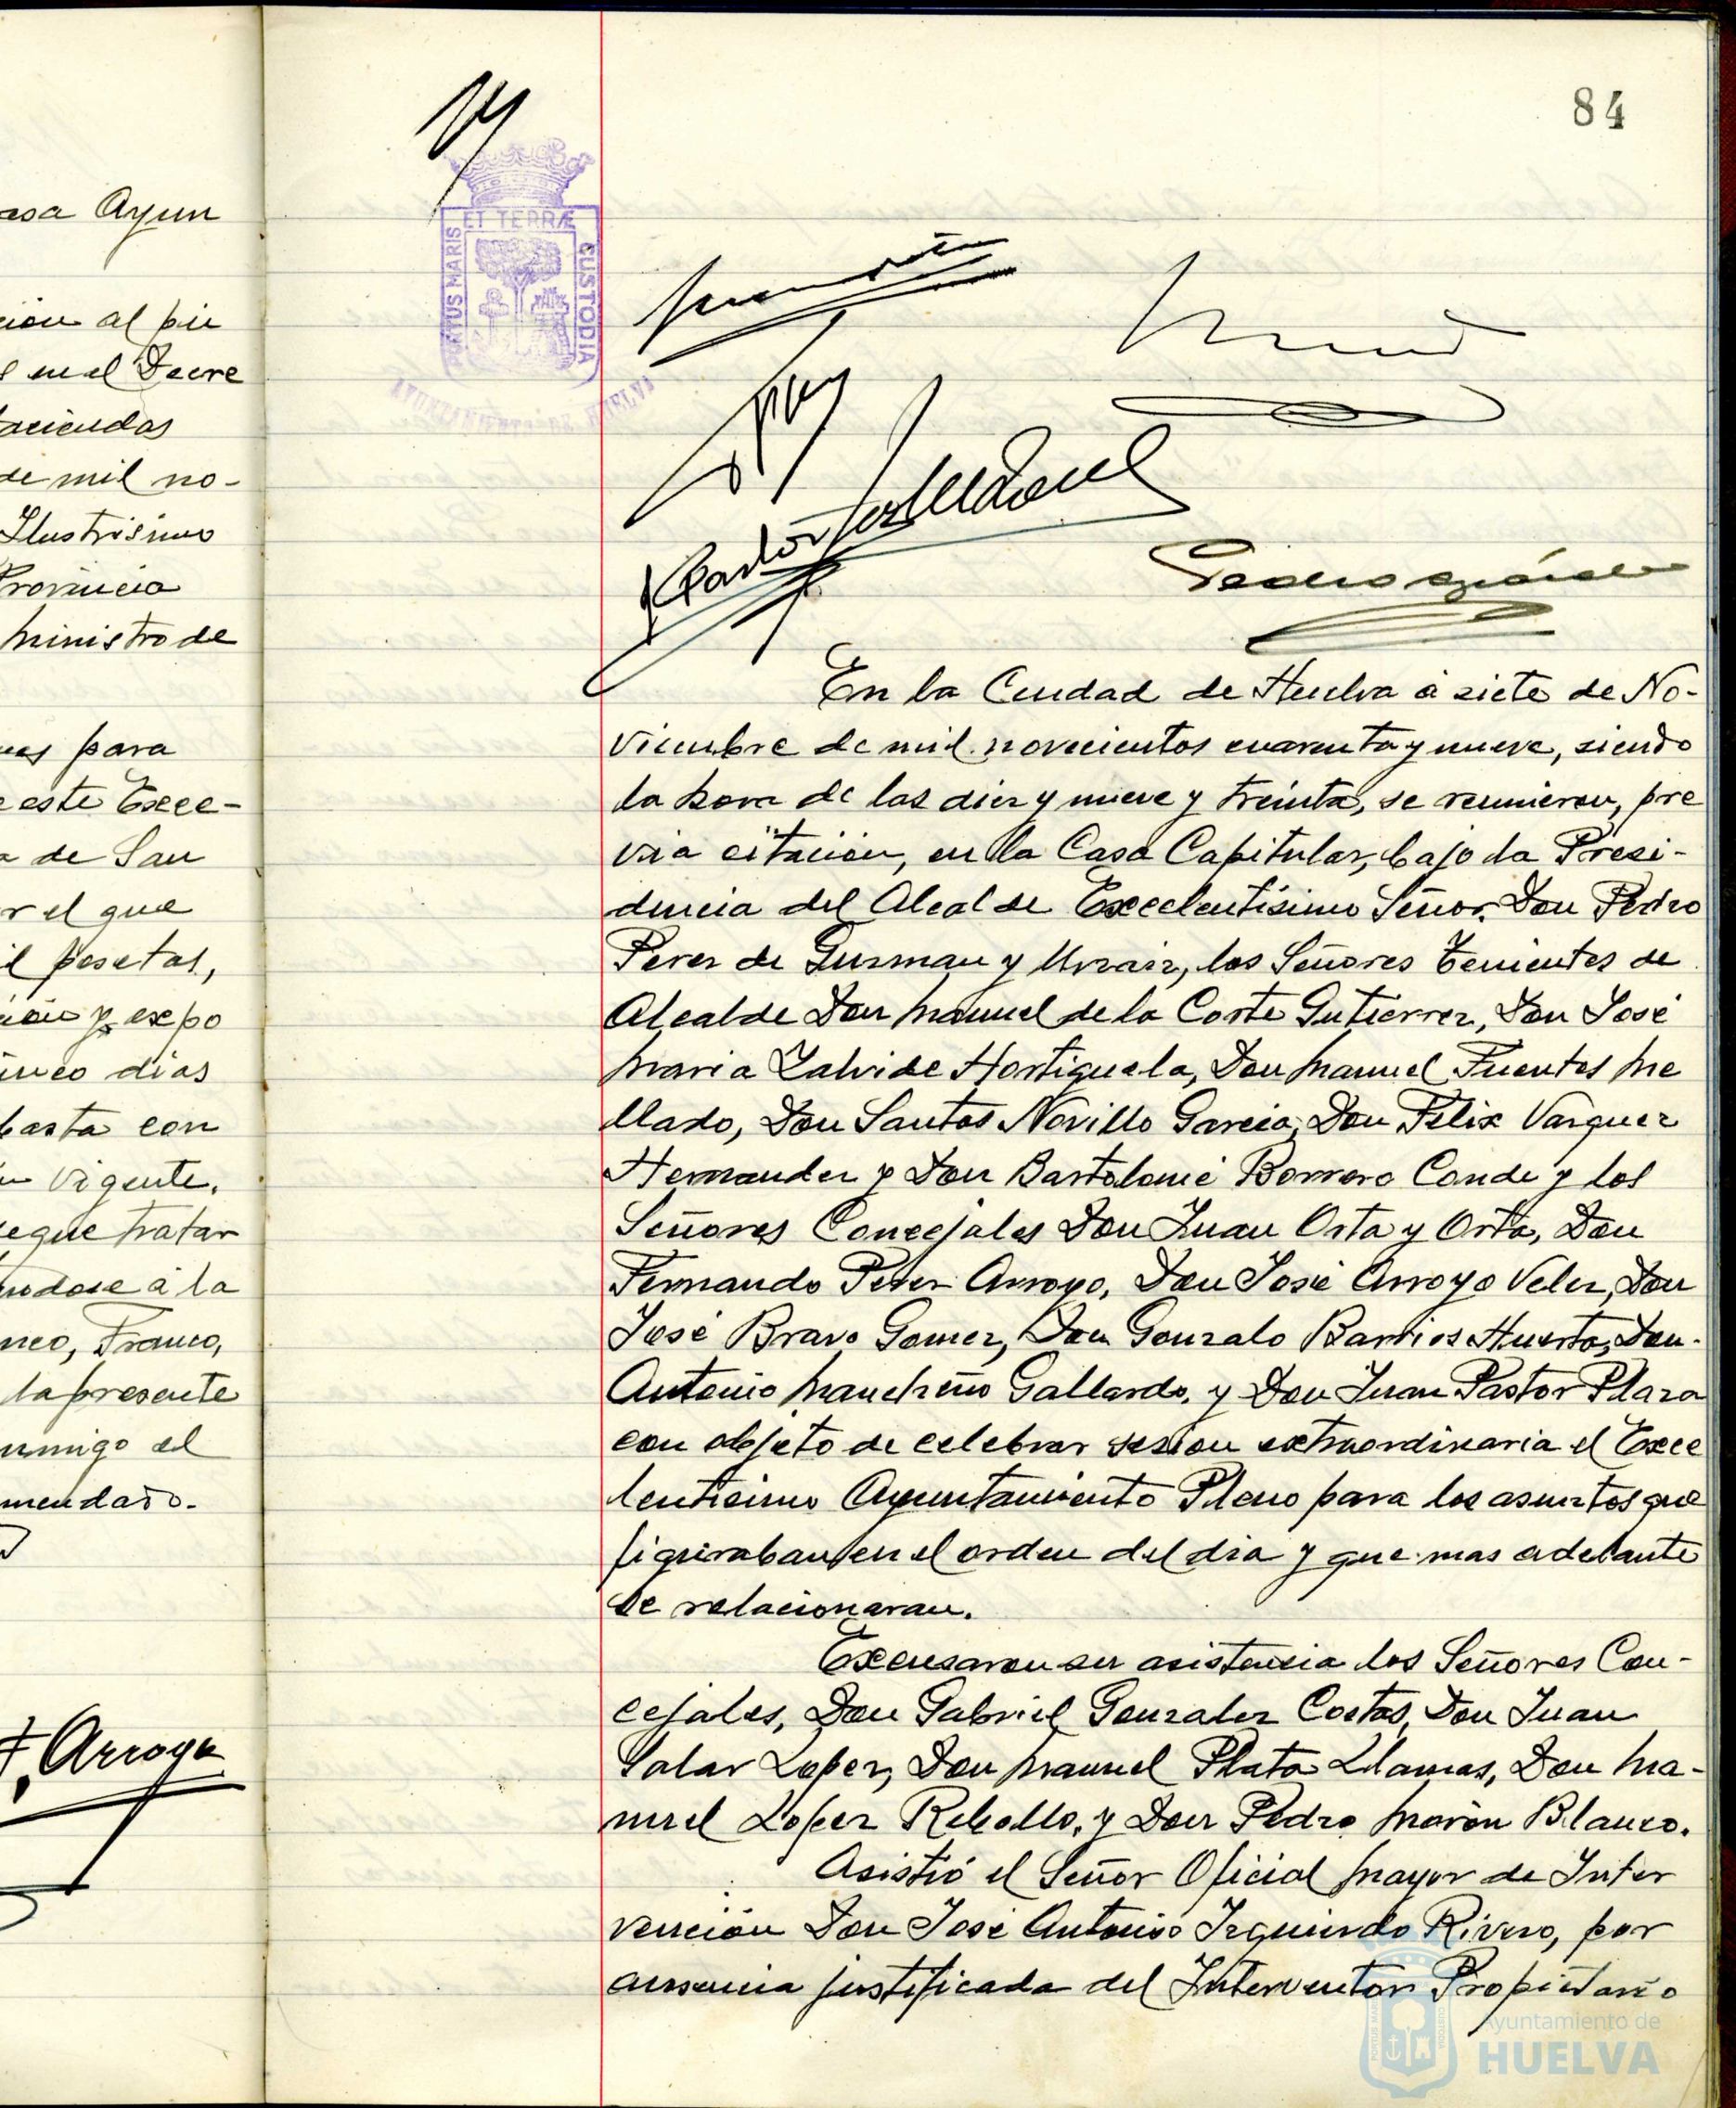 84
asa Ayun
cion al pie
s en el Decre
Haciendas
de mil no-
Ilustrisimo
Provincia
Ministro de
para
este Exce-
a de San
r el que
il pesetas,
cion y expo
inco dias
basta con
Vigente.
que tratar
ndose á la
neo, Franco,
la presente
nmigo el
mendado.
F. Arroyo
PORTUS MARIS ET TERRÆ CUSTODIA
AYUNTAMIENTO DE HUELVA
En la Ciudad de Huelva á siete de No-
viembre de mil novecientos cuarenta y nueve, siendo
la hora de las diez y nueve y treinta, se reunieron, pre
via citación, en la Casa Capitular, bajo la Presi-
dencia del Alcalde Excelentísimo Señor Don Pedro
Perez de Guzman y Urzaiz, los Señores Tenientes de
Alcalde Don Manuel de la Corte Gutierrez, Don José
Maria Zalvide Hortiguela, Don Manuel Fuentes Me
llado, Don Santos Novillo Garcia, Don Felix Vazquez
Hernandez y Don Bartolomé Borrero Conde y los
Señores Concejales Don Juan Orta y Orta, Don
Fernando Perez Arroyo, Don José Arroyo Velez, Don
José Bravo Gomez, Don Gonzalo Barrios Huerta, Don
Antonio Mancheño Gallardo, y Don Juan Pastor Plaza
con objeto de celebrar sesion extraordinaria el Exce
lentisimo Ayuntamiento Pleno para los asuntos que
figuraban en el orden del dia y que mas adelante
se relacionaran.
Excusaron su asistencia los Señores Con-
cejales, Don Gabriel Gonzalez Costas, Don Juan
Salar Lopez, Don Manuel Plata Llamas, Don Ma-
nuel Lopez Rebollo, y Don Pedro Morón Blanco.
Asistió el Señor Oficial Mayor de Inter
vención Don José Antonio Izquierdo Rivero, por
ausencia justificada del Interventor Propietario
Ayuntamiento de
HUELVA